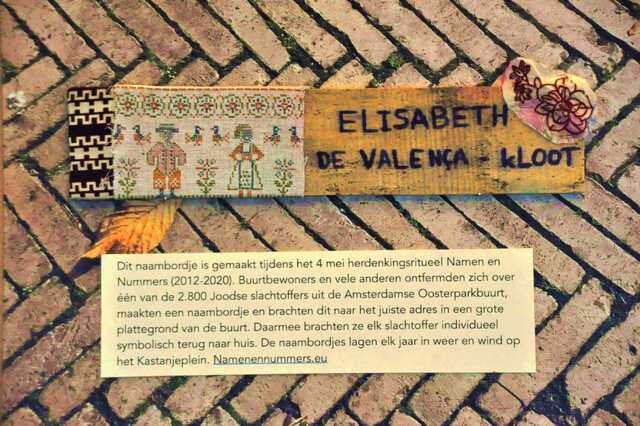 ELISABETH
DE VALENÇA - KLOOT
Dit naambordje is gemaakt tijdens het 4 mei herdenkingsritueel Namen en
Nummers (2012-2020). Buurtbewoners en vele anderen ontfermden zich over
één van de 2.800 Joodse slachtoffers uit de Amsterdamse Oosterparkbuurt,
maakten een naambordje en brachten dit naar het juiste adres in een grote
plattegrond van de buurt. Daarmee brachten ze elk slachtoffer individueel
symbolisch terug naar huis. De naambordjes lagen elk jaar in weer en wind op
het Kastanjeplein. Namenennummers.eu